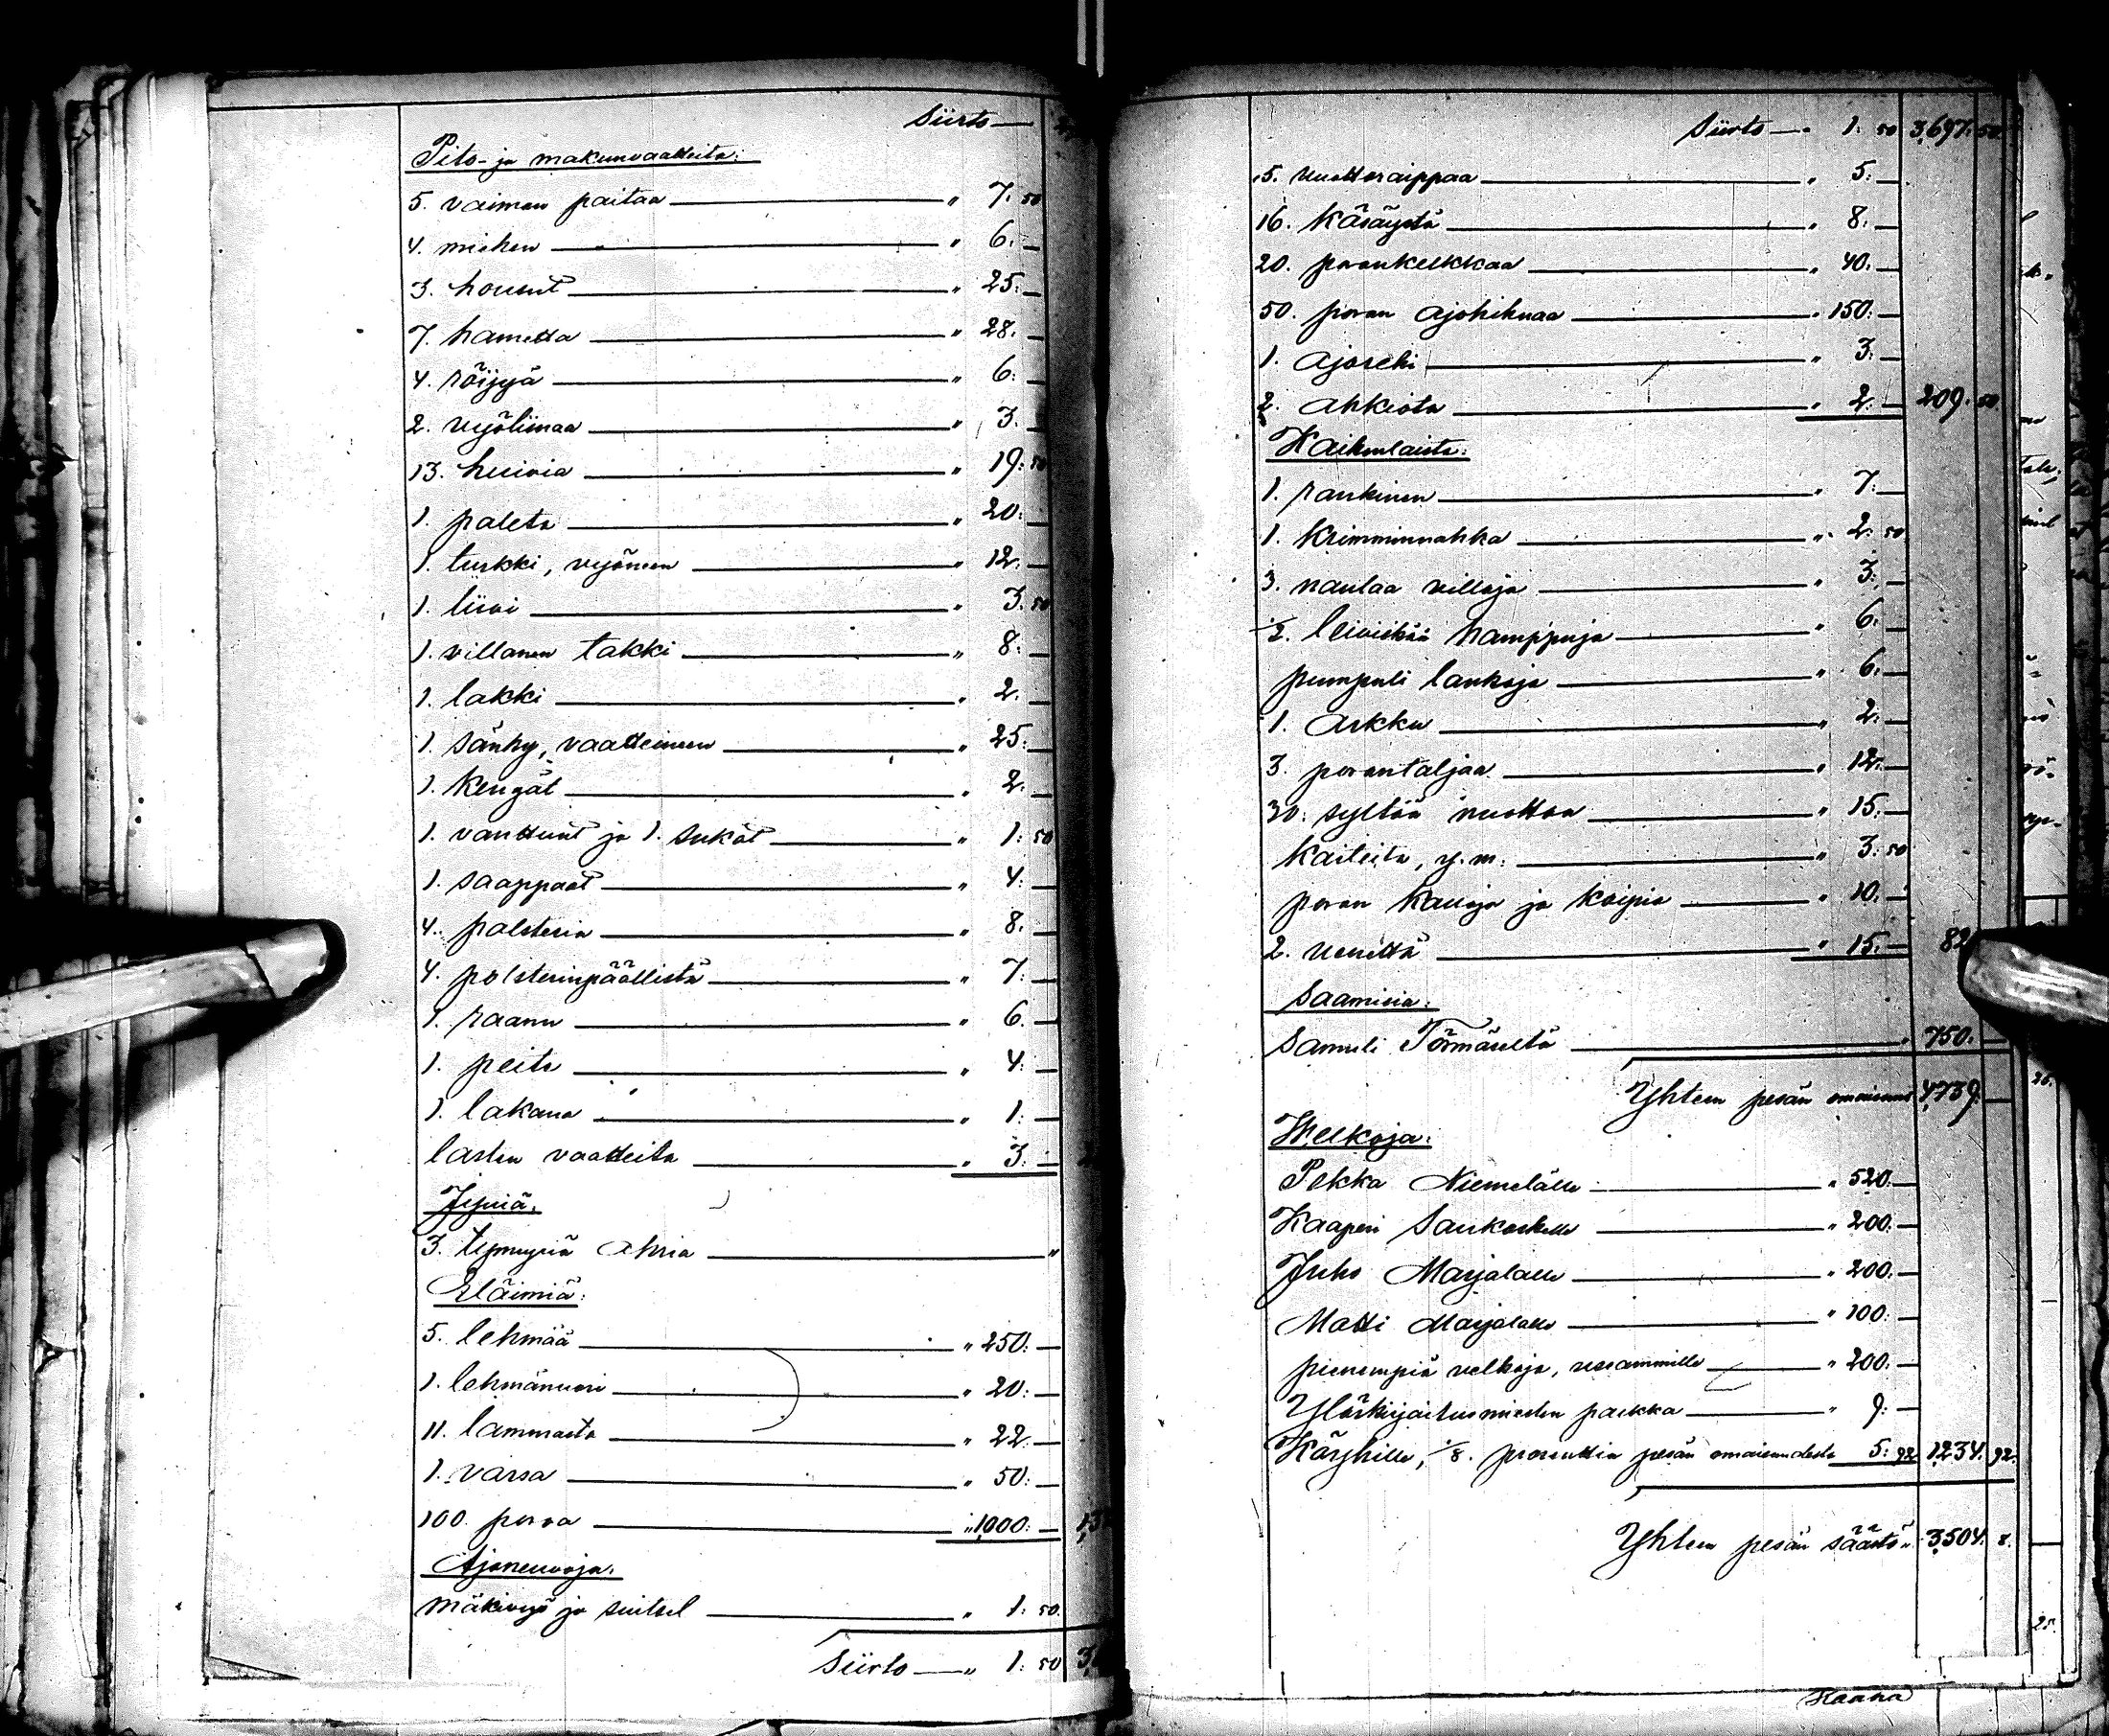 Siirto —
Pito- ja makuuvaatteita:
5. vaimon paitaa — " 7. 50
4. miehen — " 6. —
3. housut — " 25. —
7. hametta — " 28. —
4. röijyä — " 6. —
2. vyöliinaa — " 3. —
13. huivia — " 19: 50
1. paleto — " 20: —
1. turkki, vyöneen — " 12. —
1. liivi — " 3. 50
1. villanen takki — " 8: —
1. lakki — " 2. —
1. sänky, vaatteineen — " 25. —
1. kengät — " 2. —
1. vanttuut ja 1. sukat — " 1: 50
1. saappaat — " 4: —
4. polsteria — " 8. —
4. polsterinpäällistä — " 7. —
1. raanu — " 6. —
1. peite — " 4: —
1. lakana — " 1: —
lasten vaatteita — " 3: —
Jyviä.
3. tynnyriä ohria — "
Eläimiä:
5. lehmää — " 250: —
1. lehmänuori — " 20: —
11. lammasta — " 22. —
1. varsa — " 50: —
100. poroa — " 1,000: —
Ajoneuvoja.
mäkivyö ja suitset — " 1. 50.
Siirto — " 1: 50
Siirto — " 1: 50 3,697. 50
5. nuottaraippaa — " 5: —
16. käsäystä — " 8. —
20. poronkelkkaa — " 40. —
50. poron ajohihnaa — " 150: —
1. ajoreki — " 3: —
2. ahkiota — " 2: — 209. 50.
Kaikenlaista:
1. rankinen — " 7: —
1. krimminnahka — " 2. 50.
3. naulaa villoja — " 3: —
1/2. leiviskää hamppuja — " 6. —
pumpuli lankoja — " 6. —
1. arkku — " 2: —
3. porontaljaa — " 12. —
30. syltää nuottaa — " 15. —
kaiteita, y. m. — " 3: 50
poron karvoja ja koipia — " 10. —
2. venettä — " 15. — 82
Saamisia:
Samuli Törmäseltä — " 750. —
Yhteen pesän omaisuus 4,739. —
Welkoja:
Pekka Niemelälle — " 520. —
Kaaperi Saukoskelle — " 200. —
Juho Marjalalle — " 200. —
Matti Marjalalle — " 100: —
pienempiä velkoja, useammille — " 200. —
Ylöskirjoitusmiesten palkka — " 9: —
Köyhille, 1/8. prosenttia pesän omaisuudesta 5: 92 1,234. 92.
Yhteen pesän säästö " 3,504. 8.